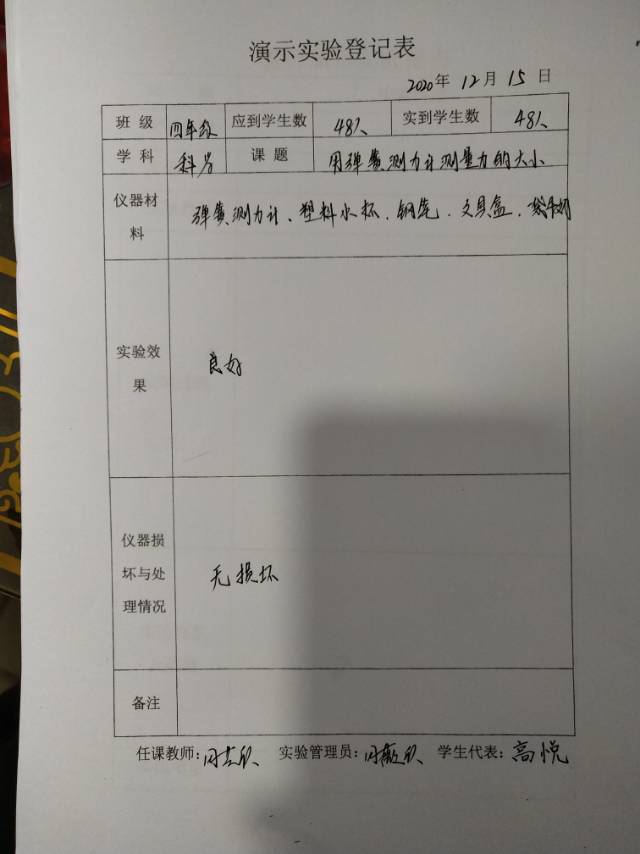 演示实验登记表
2020年 12月 15日
班级 四年级 应到学生数 48人 实到学生数 48人
学科 科学 课题 用弹簧测力计测量力的大小
仪器材料 弹簧测力计、塑料水杯、钢笔、文具盒、
实验效果 良好
仪器损坏与处理情况 无损坏
备注
任课教师: 实验管理员: 学生代表:高悦